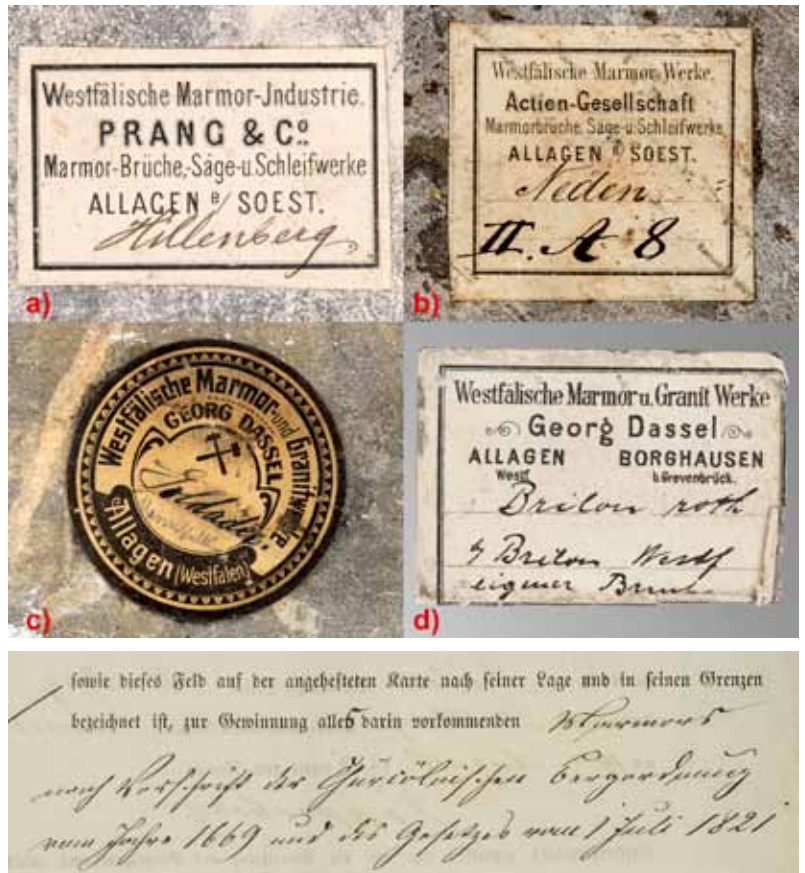 Westfälische Marmor-Jndustrie.
PRANG & Cº.
Marmor-Brüche,-Säge-u.Schleifwerke
ALLAGEN B/ SOEST.
Hillenberg
a)
Westfälische Marmor-Werke.
Actien-Gesellschaft
Marmorbrüche, Säge-u.Schleifwerke
ALLAGEN B/ SOEST.
Neden
II. A 8
b)
Westfälische Marmor-und Granitwerke
GEORG DASSEL
Goldader
Allagen (Westfalen)
c)
Westfälische Marmor u. Granit Werke
Georg Dassel
ALLAGEN BORGHAUSEN
Westf. b.Grevenbrück.
Brilon roth
Brilon Westf
eigener
d)
sowie dieses Feld auf der angehefteten Karte nach seiner Lage und in seinen Grenzen
bezeichnet ist, zur Gewinnung alles darin vorkommenden Marmors
nach Vorschrift der Churcölnischen Bergordnung
vom Jahre 1669 und des Gesetzes vom 1 Juli 1821